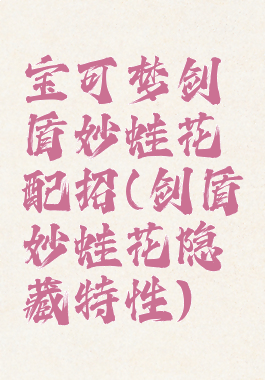 宝可梦剑
盾妙蛙花
配招(剑盾
妙蛙花隐
藏特性)